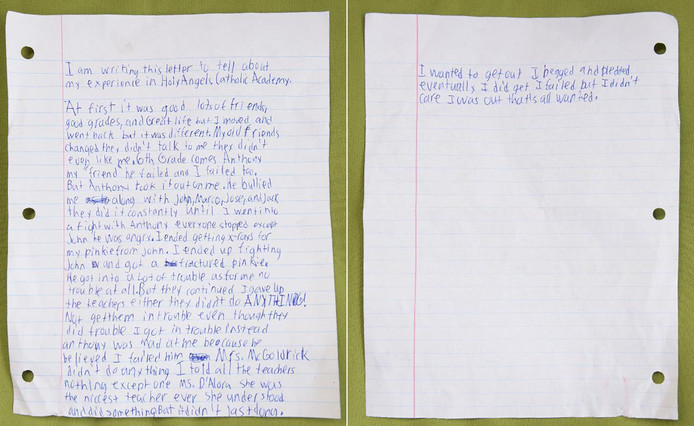 I am writing this letter to tell about
my experience in Holy Angels Catholic Academy.
At first it was good lots of friends,
good grades, and Great life but I moved and
went back but it was different. My old friends
changed they didn't talk to me they didn't
even like me. 6th Grade comes Anthony
my friend he failed and I failed too.
But Anthony took it out on me. he bullied
me along with John, Marco, Jose, and Jack
they did it constantly until I went into
a fight with Anthony everyone stopped except
John he was angry. I ended getting x-rays for
my pinkie from John. I ended up fighting
John and got a fractured pinkie.
He got into a lot of trouble as for me no
trouble at all. But they continued I gave up
the teachers either they didn't do ANYTHING!
Not get them in trouble even though they
did trouble I got in trouble instead
anthony was mad at me beacause he
believed I failed him Mrs. McGoldrick
didn't do any thing I told all the teachers
nothing except one Ms. D'Alora she was
the nicest teacher ever she understood
and did something. But it didn't last long.
I wanted to get out I begged and pleded
eventually I did get I failed but I didn't
care I was out thats all wanted.